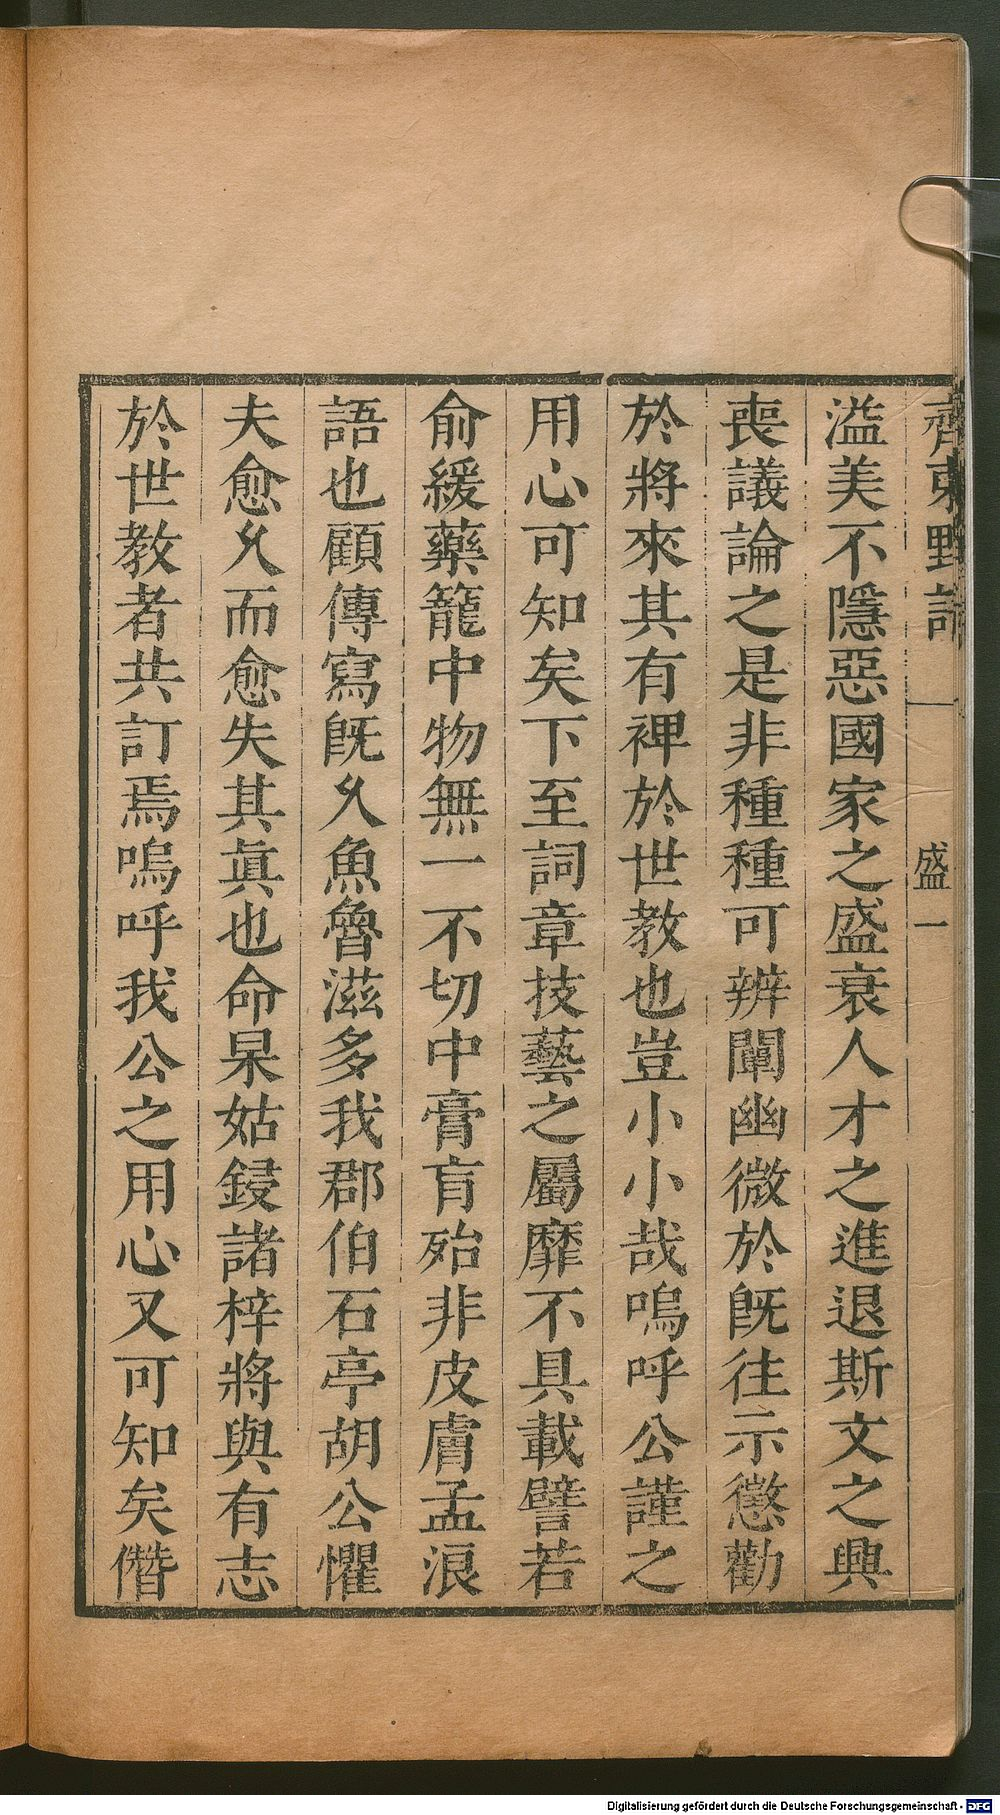 齊東野語 盛一
溢美不隱惡國家之盛衰人才之進退斯文之興
喪議論之是非種種可辨闡幽微於旣往示懲勸
於將來其有裨於世教也豈小小哉嗚呼公謹之
用心可知矣下至詞章技藝之屬靡不具載譬若
俞緩藥籠中物無一不切中膏肓殆非皮膚孟浪
語也顧傳寫旣乆魚魯滋多我郡伯石亭胡公懼
夫愈乆而愈失其眞也命杲姑鋟諸梓將與有志
於世教者共訂焉嗚呼我公之用心又可知矣僭
Digitalisierung gefördert durch die Deutsche Forschungsgemeinschaft - DFG